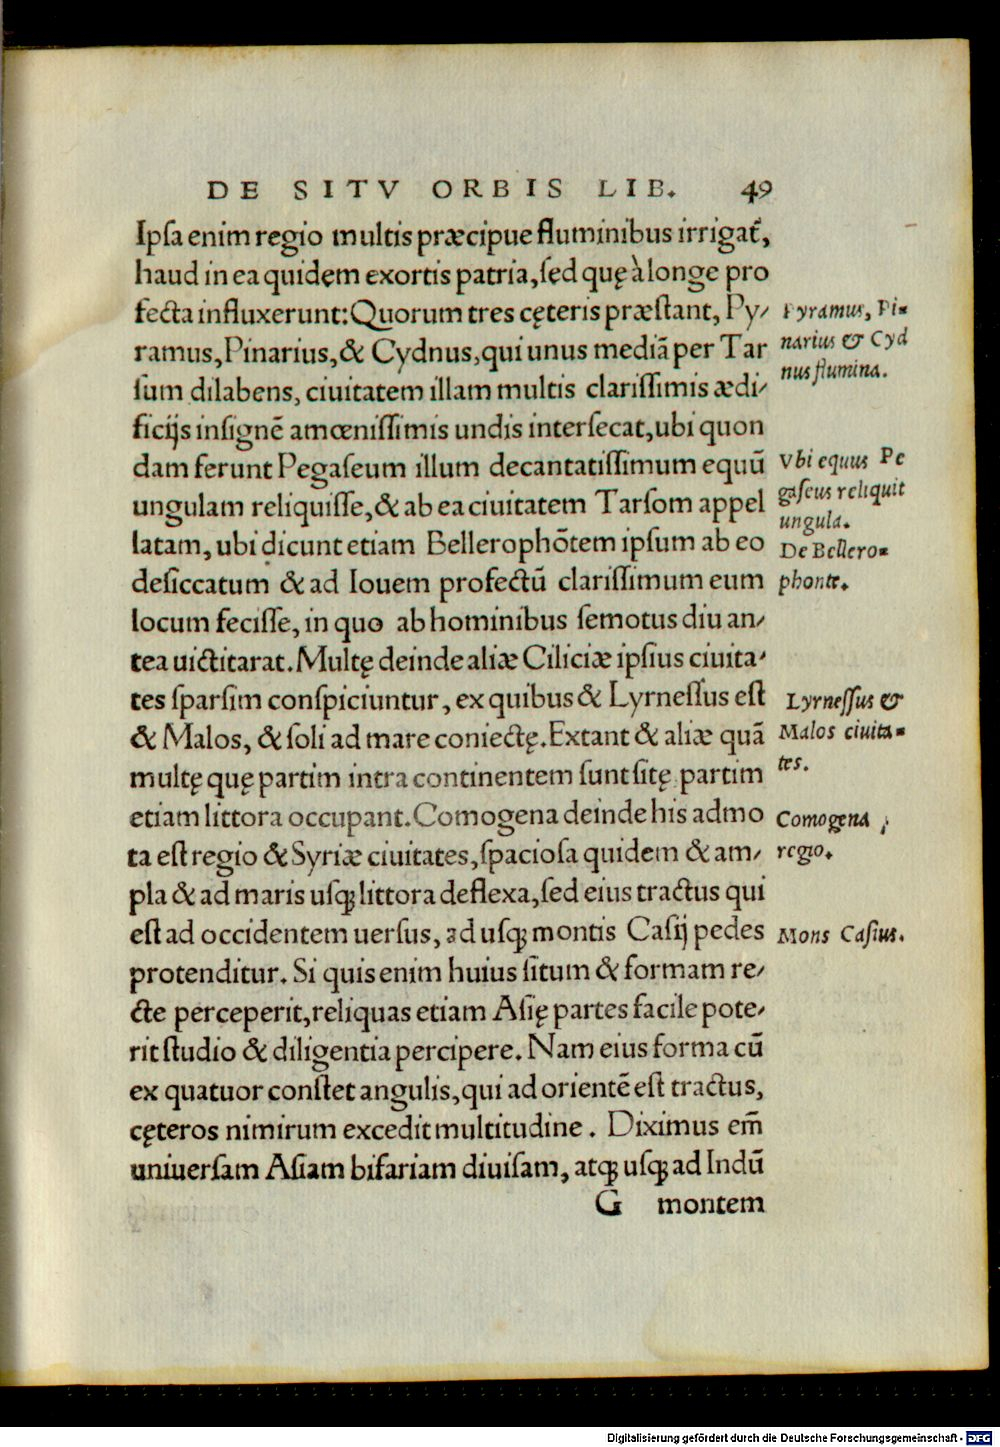 DE SITV ORBIS LIB. 49
Ipsa enim regio multis præcipue fluminibus irrigat᷑,
haud in ea quidem exortis patria, sed quę à longe pro
fecta influxerunt: Quorum tres cęteris præstant, Py-
ramus, Pinarius, & Cydnus, qui unus mediā per Tar
sum dilabens, ciuitatem illam multis clarissimis ædi-
ficijs insignē amœnissimis undis intersecat, ubi quon
dam ferunt Pegaseum illum decantatissimum equū
ungulam reliquisse, & ab ea ciuitatem Tarsom appel
latam, ubi dicunt etiam Bellerophōtem ipsum ab eo
desiccatum & ad Iouem profectū clarissimum eum
locum fecisse, in quo ab hominibus semotus diu an-
tea uictitarat. Multę deinde aliæ Ciliciæ ipsius ciuita-
tes sparsim conspiciuntur, ex quibus & Lyrnessus est
& Malos, & soli ad mare coniectę. Extant & aliæ quā
multę quę partim intra continentem sunt sitę partim
etiam littora occupant. Comogena deinde his admo
ta est regio & Syriæ ciuitates, spaciosa quidem & am-
pla & ad maris usq; littora deflexa, sed eius tractus qui
est ad occidentem uersus, ad usq; montis Casij pedes
protenditur. Si quis enim huius situm & formam re-
cte perceperit, reliquas etiam Asię partes facile pote-
rit studio & diligentia percipere. Nam eius forma cū
ex quatuor constet angulis, qui ad orientē est tractus,
cęteros nimirum excedit multitudine. Diximus em̄
uniuersam Asiam bifariam diuisam, atq; usq; ad Indū
G montem
Pyramus, Pi=
narius & Cyd
nus flumina.
Vbi equus Pe
gaseus reliquit
ungula.
De Bellero=
phonte.
Lyrnessus &
Malos ciuita=
tes.
Comogena
regio.
Mons Casius.
Digitalisierung gefördert durch die Deutsche Forschungsgemeinschaft - DFG